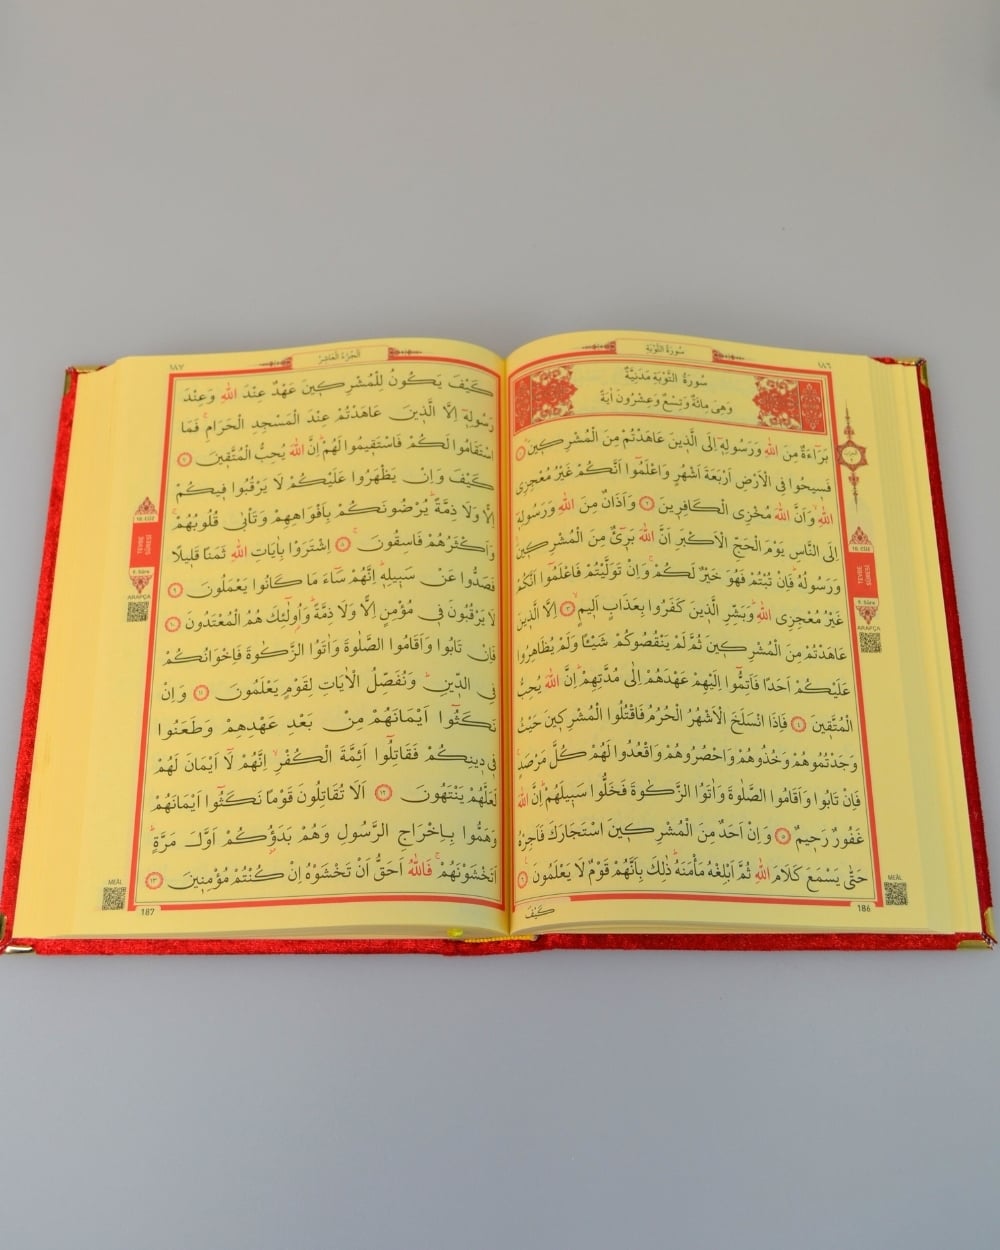 سُورَةُ التَّوْبَةِ
١٨٦
سُورَةُ التَّوْبَةِ مَدَنِيَّةٌ
وَهِيَ مِائَةٌ وَتِسْعٌ وَعِشْرُونَ اٰيَةً
بَرَٓاءَةٌ مِنَ اللّٰهِ وَرَسُولِه۪ٓ اِلَى الَّذ۪ينَ عَاهَدْتُمْ مِنَ الْمُشْرِك۪ينَۜ ١
فَس۪يحُوا فِي الْاَرْضِ اَرْبَعَةَ اَشْهُرٍ وَاعْلَمُٓوا اَنَّكُمْ غَيْرُ مُعْجِزِي
اللّٰهِۙ وَاَنَّ اللّٰهَ مُخْزِي الْكَافِر۪ينَ ٢ وَاَذَانٌ مِنَ اللّٰهِ وَرَسُولِه۪ٓ
اِلَى النَّاسِ يَوْمَ الْحَجِّ الْاَكْبَرِ اَنَّ اللّٰهَ بَر۪ٓيءٌ مِنَ الْمُشْرِك۪ينَۙ
وَرَسُولُهُۜ فَاِنْ تُبْتُمْ فَهُوَ خَيْرٌ لَكُمْۚ وَاِنْ تَوَلَّيْتُمْ فَاعْلَمُٓوا اَنَّكُمْ
غَيْرُ مُعْجِزِي اللّٰهِۜ وَبَشِّرِ الَّذ۪ينَ كَفَرُوا بِعَذَابٍ اَل۪يمٍۙ ٣ اِلَّا الَّذ۪ينَ
عَاهَدْتُمْ مِنَ الْمُشْرِك۪ينَ ثُمَّ لَمْ يَنْقُصُوكُمْ شَيْـًٔا وَلَمْ يُظَاهِرُوا
عَلَيْكُمْ اَحَدًا فَاَتِمُّٓوا اِلَيْهِمْ عَهْدَهُمْ اِلٰى مُدَّتِهِمْۜ اِنَّ اللّٰهَ يُحِبُّ
الْمُتَّق۪ينَ ٤ فَاِذَا انْسَلَخَ الْاَشْهُرُ الْحُرُمُ فَاقْتُلُوا الْمُشْرِك۪ينَ حَيْثُ
وَجَدْتُمُوهُمْ وَخُذُوهُمْ وَاحْصُرُوهُمْ وَاقْعُدُوا لَهُمْ كُلَّ مَرْصَدٍۚ
فَاِنْ تَابُوا وَاَقَامُوا الصَّلٰوةَ وَاٰتَوُا الزَّكٰوةَ فَخَلُّوا سَب۪يلَهُمْۜ اِنَّ اللّٰهَ
غَفُورٌ رَح۪يمٌ ٥ وَاِنْ اَحَدٌ مِنَ الْمُشْرِك۪ينَ اسْتَجَارَكَ فَاَجِرْهُ
حَتّٰى يَسْمَعَ كَلَامَ اللّٰهِ ثُمَّ اَبْلِغْهُ مَأْمَنَهُۜ ذٰلِكَ بِاَنَّهُمْ قَوْمٌ لَا يَعْلَمُونَ۟ ٦
186
كَيْفَ
10. CÜZ
TEVBE SÛRESİ
9. Sûre
ARAPÇA
MEÂL
اَلْجُزْءُ الْعَاشِرُ
١٨٧
كَيْفَ يَكُونُ لِلْمُشْرِك۪ينَ عَهْدٌ عِنْدَ اللّٰهِ وَعِنْدَ
رَسُولِه۪ٓ اِلَّا الَّذ۪ينَ عَاهَدْتُمْ عِنْدَ الْمَسْجِدِ الْحَرَامِۚ فَمَا
اسْتَقَامُوا لَكُمْ فَاسْتَق۪يمُوا لَهُمْۜ اِنَّ اللّٰهَ يُحِبُّ الْمُتَّق۪ينَ ٧
كَيْفَ وَاِنْ يَظْهَرُوا عَلَيْكُمْ لَا يَرْقُبُوا ف۪يكُمْ
اِلًّا وَلَا ذِمَّةًۜ يُرْضُونَكُمْ بِاَفْوَاهِهِمْ وَتَأْبٰى قُلُوبُهُمْۚ
وَاَكْثَرُهُمْ فَاسِقُونَۚ ٨ اِشْتَرَوْا بِاٰيَاتِ اللّٰهِ ثَمَنًا قَل۪يلًا
فَصَدُّوا عَنْ سَب۪يلِه۪ۜ اِنَّهُمْ سَٓاءَ مَا كَانُوا يَعْمَلُونَ ٩
لَا يَرْقُبُونَ ف۪ي مُؤْمِنٍ اِلًّا وَلَا ذِمَّةًۜ وَاُو۬لٰٓئِكَ هُمُ الْمُعْتَدُونَ ١٠
فَاِنْ تَابُوا وَاَقَامُوا الصَّلٰوةَ وَاٰتَوُا الزَّكٰوةَ فَاِخْوَانُكُمْ
فِي الدّ۪ينِۜ وَنُفَصِّلُ الْاٰيَاتِ لِقَوْمٍ يَعْلَمُونَ ١١ وَاِنْ
نَكَثُٓوا اَيْمَانَهُمْ مِنْ بَعْدِ عَهْدِهِمْ وَطَعَنُوا
ف۪ي د۪ينِكُمْ فَقَاتِلُٓوا اَئِمَّةَ الْكُفْرِۙ اِنَّهُمْ لَٓا اَيْمَانَ لَهُمْ
لَعَلَّهُمْ يَنْتَهُونَ ١٢ اَلَا تُقَاتِلُونَ قَوْمًا نَكَثُٓوا اَيْمَانَهُمْ
وَهَمُّوا بِاِخْرَاجِ الرَّسُولِ وَهُمْ بَدَؤُ۫كُمْ اَوَّلَ مَرَّةٍۜ
اَتَخْشَوْنَهُمْۚ فَاللّٰهُ اَحَقُّ اَنْ تَخْشَوْهُ اِنْ كُنْتُمْ مُؤْمِن۪ينَ ١٣
187
10. CÜZ
TEVBE SÛRESİ
9. Sûre
ARAPÇA
MEÂL